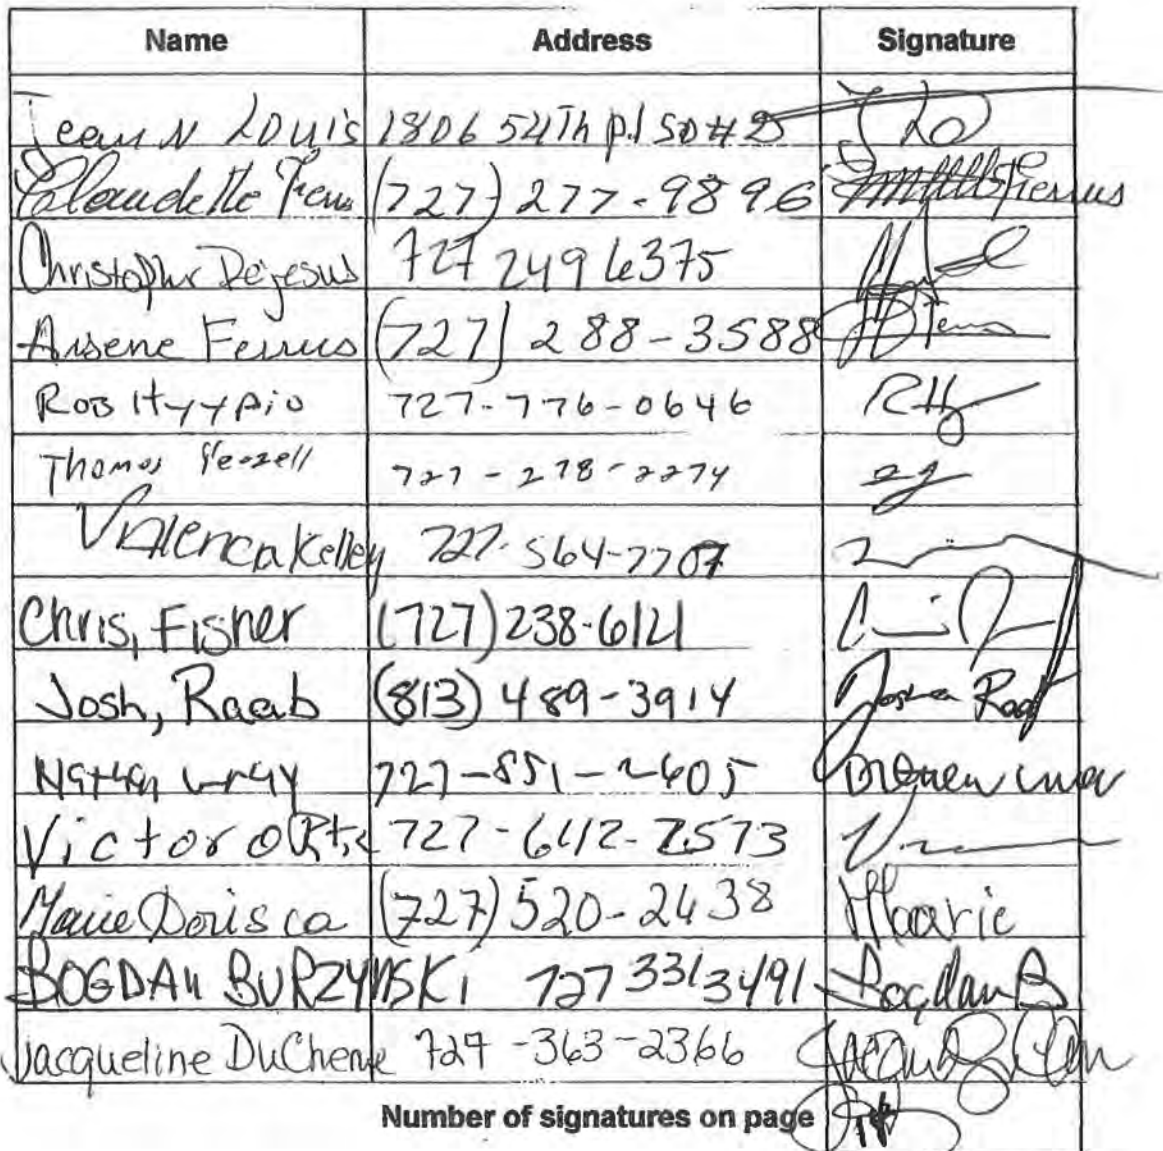 Name Address Signature
Jean N Louis 1806 54Th pl SO #
Claudette 727) 277-9896
Christopher Dejesus 727 249 6375
Arsene Ferrus (727) 288-3588
ROB Hyypio 727-776-0646 RHy
Thomas 727-278-2274
Valenca Kelley 727-564-7707
Chris, Fisher (727) 238-6121
Josh, Raab (813) 489-3914 Joshua Raab
Nathan wray 727-851-2605
Victor ORtiz 727-642-7573
Marie Dorisca (727) 520-2438 Maarie
BOGDAN BURZYNSKI 727 3313491 Bogdan B
Jacqueline DuChene 727-363-2366
Number of signatures on page